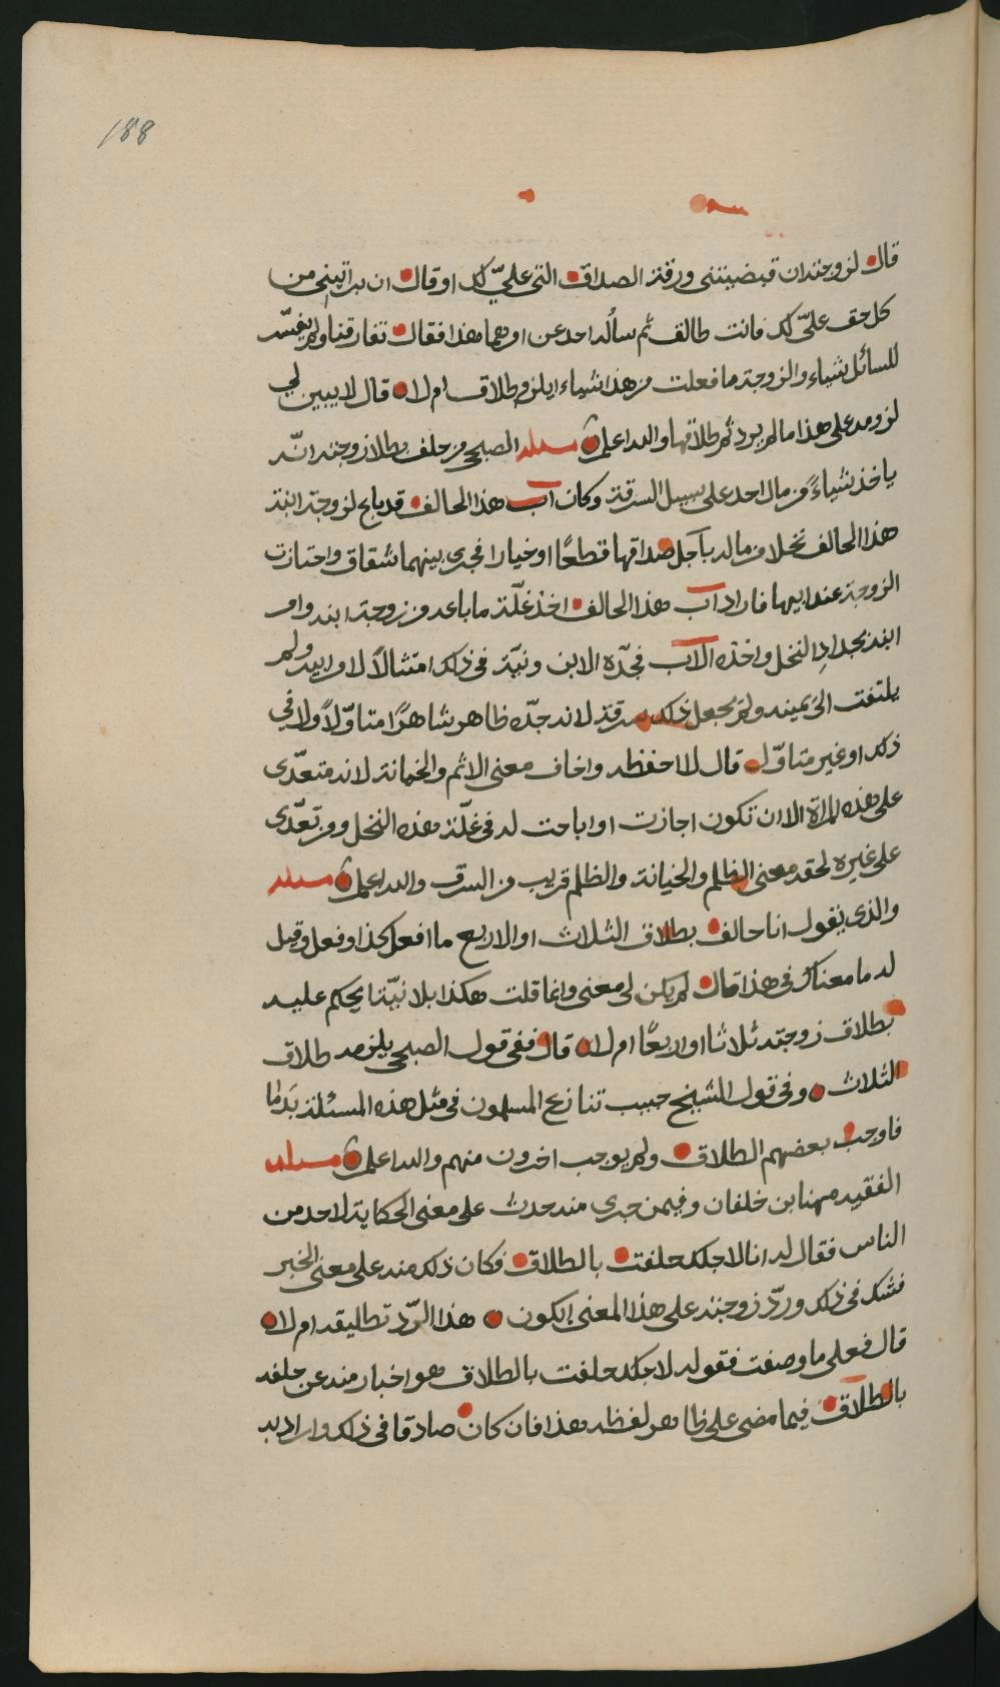 188
قال لزوجته ان قبضتني ورقة الصداق التي عليّ لك او قال ان براتيني من
كل حق عليّ لك فانت طالق ثم سأله احد عن امرهما هذا فقال تفارقنا ولم يفسّر
للسائل شياء والزوجة ما فعلت من هذا شياء ايلزم طلاق ام لا قال لا يبين لي
لزومه على هذا ما لم يرد ثم طلاقها والله اعلم مسئله الصبحي من حلف بطلاق زوجته انّه
ياخذ شياءً من مال احد على سبيل السرقة وكان اب هذا الحالف قد باع لزوجة ابنه
هذا الحالف نخلا من ماله بآجل صداقها قطعًا او خيارا فجرى بينهما شقاق واحتازت
الزوجة عند ابيها فاراد اب هذا الحالف اخذ غلّة ما باعه من زوجة ابنه وامر
ابنه بجداد النخل واخذه الاب فجدّه الابن ونيّته في ذلك امتثالاً لامر ابيه ولم
يلتفت الى يمينه ولم يجعل ذلك سرقة لانه جدّه ظاهر شاهرًا متاوّلاً ولا في
ذلك او غير متاوّل قال لا احفظه واخاف معنى الاثم والخيانة لانه متعدّى
على هذه المراة الا ان تكون اجازت او اباحت له في غلّة هذه النخل ومن تعدّى
على غيره لحقه معنى الظلم والخيانة والظلم قريب من السرق والله اعلم مسئله
والذى يقول انا حالف بطلاق الثلاث او الاربع ما افعل كذا وفعل وقيل
له ما معناك في هذا قال لم يكن لي معنى وانما قلت هكذا بلا نيّة ايحكم عليه
بطلاق زوجته ثلاثا او اربعًا ام لا قال ففي قول الصبحي يلزمه طلاق
الثلاث وفي قول الشيخ حبيب تنازع المسلمون في مثل هذه المسئلة بَدمَا
فاوجب بعضهم الطلاق ولم يوجب اخرون منهم والله اعلم مسئله
الفقيه مهنا بن خلفان وفيمن جرى منه حدث على معنى الحكاية لاحد من
الناس فقال له انا لاجلك حلفت بالطلاق فكان ذلك منه على معنى الخبر
فشك في ذلك وردّ زوجته على هذا المعنى ايكون هذا الرّد تطليقه ام لا
قال فعلى ما وصفت فقوله لاجلك حلفت بالطلاق هو اخبار منه عن حلفه
بالطلاق فيما مضى على ظاهر لفظه هذا فان كان صادقا في ذلك واراد به